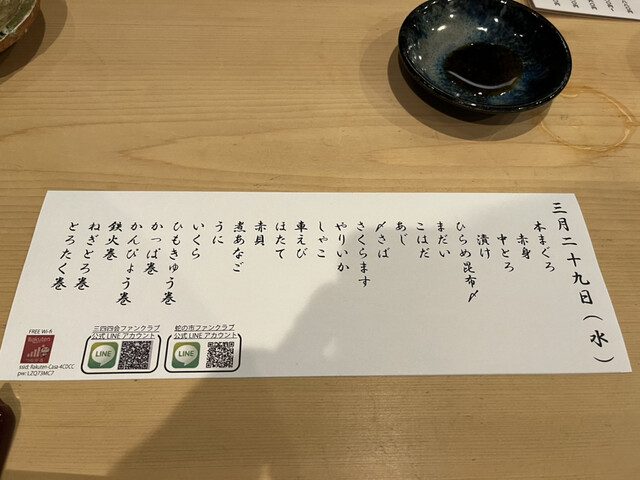 三月二十九日（水）
本まぐろ
赤身
中とろ
漬け
ひらめ昆布〆
まだい
こはだ
あじ
〆さば
さくらます
やりいか
しゃこ
車えび
ほたて
赤貝
煮あなご
うに
いくら
ひもきゅう巻
かっぱ巻
かんぴょう巻
鉄火巻
ねぎとろ巻
とろたく巻
蛇の市ファンクラブ
公式LINEアカウント
LINE
三四四会ファンクラブ
公式LINEアカウント
LINE
FREE Wi-fi
ssid: Rakuten-Casa-4CDCC
pw: LZQ73MC7